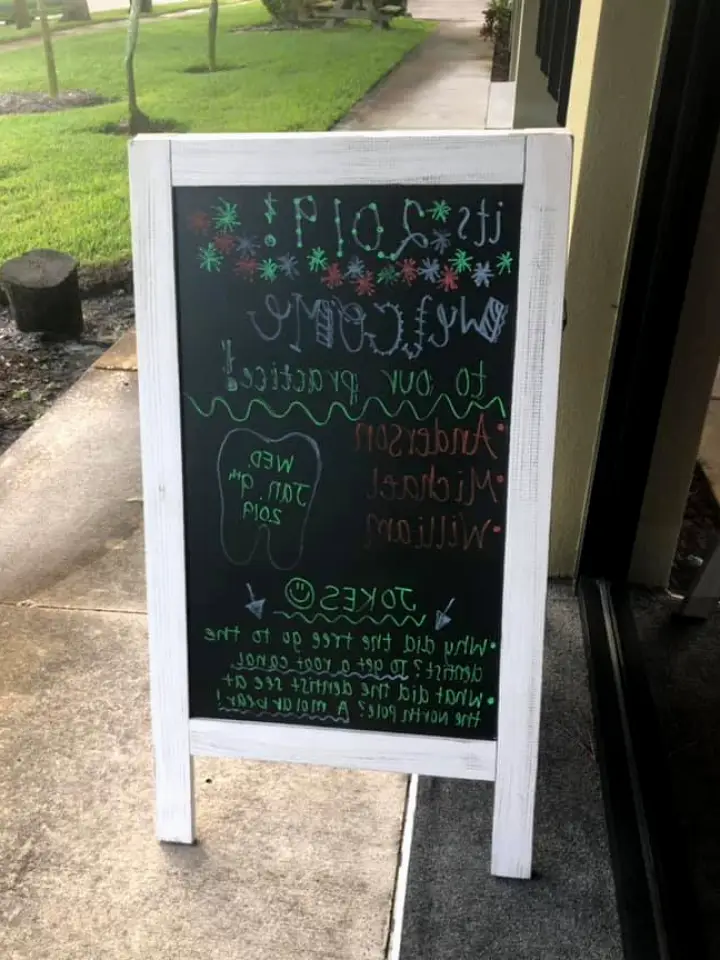 its 2019!
Welcome
to our practice!
• Anderson
• Michael
• William
WED.
Jan. 9th
2019
JOKES
• Why did the tree go to the
dentist? To get a root canal
• What did the dentist see at
the North Pole? A molar bear!